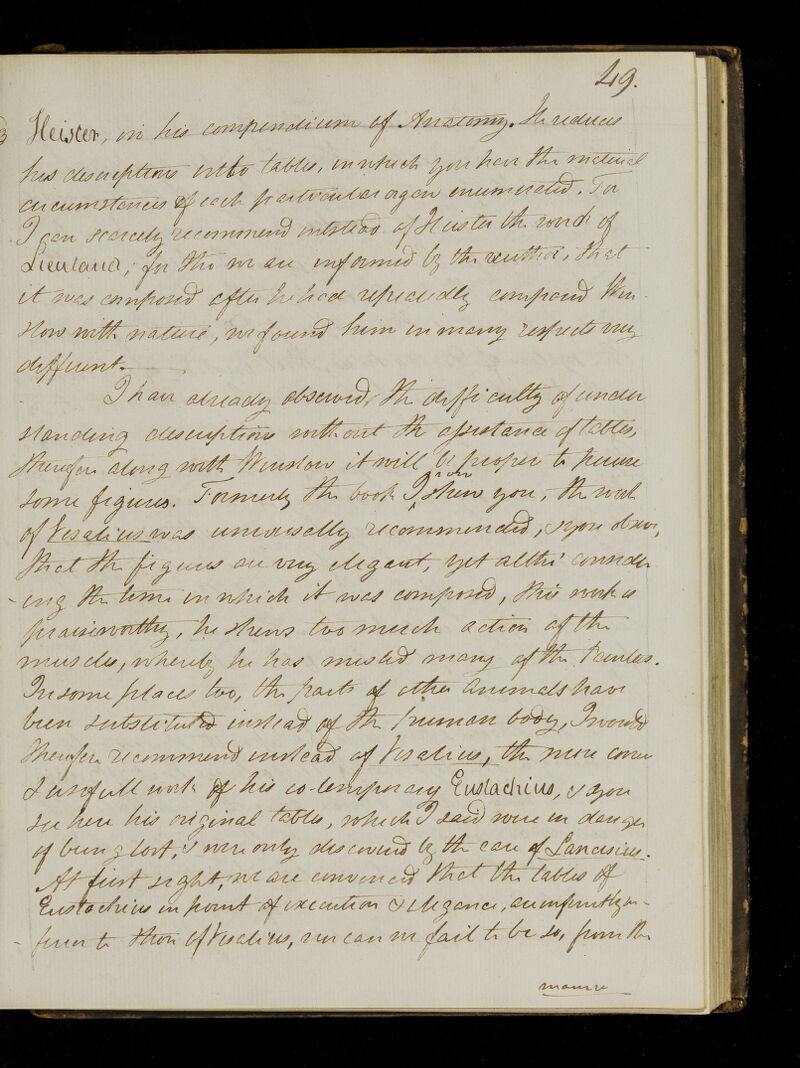 49.
Heister, in his compendium of Anatomy. He reduces
his descriptions into tables, in which you have the material
circumstances of each particular organ enumerated. For
I can scarcely recommend instead of Heister the work of
Lieutaud; for tho we are informed by the author, that
it was composed after he had repeatedly compared Win-
slow with nature, we found him in many respects very
different.
I have already observed, the difficulty of under
standing descriptions without the assistance of tables,
therefore along with Winslow it will be proper to peruse
some figures. Formerly the book I now shew you, the work
of Vesalius was universally recommended, & you observe,
that the figures are very elegant, yet altho' consider
-ing the time in which it was composed, this work is
praiseworthy, he shews too much action of the
muscles, whereby he has misled many of the Painters.
In some places too, the parts of other animals have
been substituted instead of the human body, I would
therefore recommend instead of Vesalius, the more correct
& usefull work of his co-temporary Eustachius, & you
see here his original tables, which I said were in danger
of being lost, & were only discovered by the care of Lancisius.
At first sight, we are convinced that the tables of
Eustachius in point of execution & elegance, are infinitely in-
-ferior to those of Vesalius, nor can we fail to be so, from the
manner